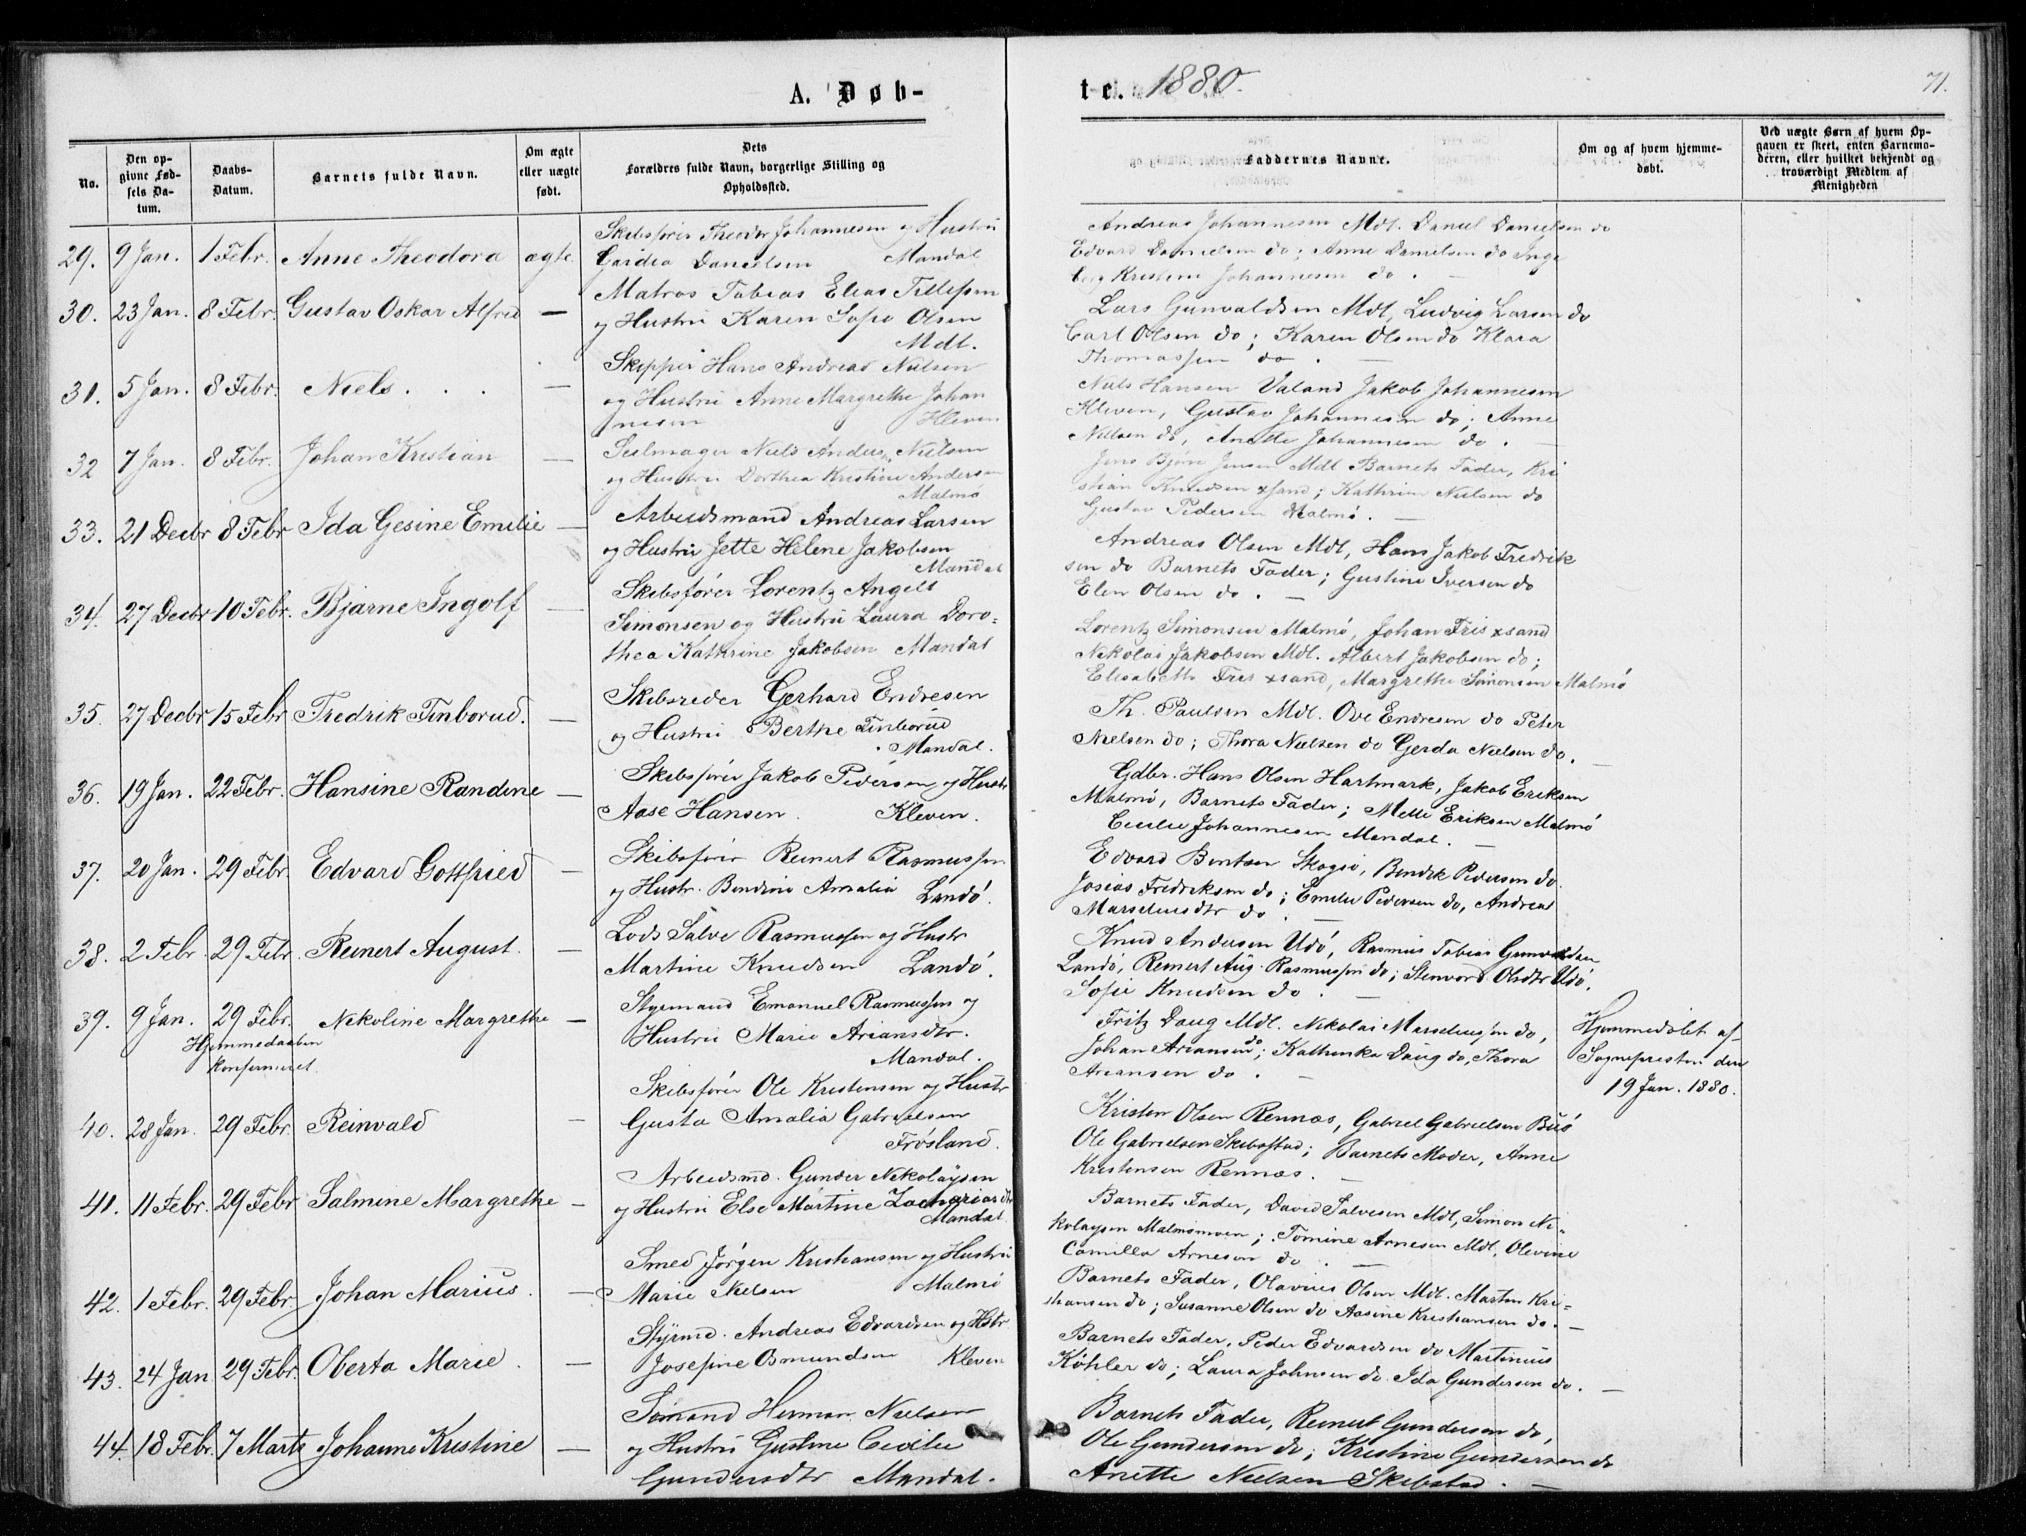 A. Døb-
te. 1880.
71.
No.
Den opgivne Fødsels Datum.
Daabs-Datum.
Barnets fulde Navn.
Om ægte eller uægte født.
Dets Forældres fulde Navn, borgerlige Stilling og Opholdssted.
Faddernes Navne.
Om og af hvem hjemmedøbt.
Ved uægte Børn af hvem Opgaven er skeet, enten Barnemoderen, eller hvilket bekjendt og troværdigt Medlem af Menigheden
29. 9 Jan. 1 Febr. Anne Theodora ægte
Skibsfører Theodor Johannesen og Hustru
Danielsen Mandal
Andreas Johannesen Mdl. Daniel Danielsen do
Edvard Danielsen do; Anne Danielsen do Inge
borg Kristine Johannesen do.
30. 23 Jan. 8 Febr. Gustav Oskar Alfred —
Matros Tobias Elias Tellefsen
og Hustru Karen Sofie Olsen
Mdl.
Lars Gunvaldsen Mdl, Ludvig Larsen do
Carl Olsen do; Karen Olsen do Klara
Thomassen do. —
31. 5 Jan. 8 Febr. Niels. —
Skipper Hans Andreas Nielsen
og Hustru Anne Margrethe Johan
nesen Kleven
Niels Hansen Valand Jakob Johannesen
Kleven, Gustav Johannesen do; Anne
Nielsen do, Anette Johannesen do. —
32 7 Jan. 8 Febr. Johan Kristian —
Seilmager Niels Anders. Nielsen
og Hustru Dorthea Kristine Andersen
Malmø
Jens Bjørn Jensen Mdl Barnets Fader, Kri
stian Knudsen xsand; Kathrine Nielsen do
Gustav Pedersen Malmø. —
33. 21 Decbr 8 Febr Ida Gesine Emilie —
Arbeidsmand Andreas Larsen
og Hustru Jette Helene Jakobsen
Mandal
Andreas Olsen Mdl, Hans Jakob Fredrik
sen do Barnets Fader; Gustine Iversen do
Elen Olsen do. —
34. 27 Decbr 10 Febr. Bjarne Ingolf —
Skibsfører Lorentz Angell
Simonsen og Hustru Laura Doro-
thea Kathrine Jakobsen Mandal
Lorentz Simonsen Malmø, Johan Friis xsand
Nikolai Jakobsen Mdl. Albert Jakobsen do;
Elisabeth Friis xsand, Margrethe Simonsen Malmø
35. 27 Decbr 15 Febr Fredrik Finborud. —
Skibsreder Gerhard Endresen
og Hustru Berthe Finborud
Mandal.
Th. Paulsen Mdl. Ove Endresen do Peter
Nielsen do; Thora Nielsen do Gerda Nielsen do. —
36. 19 Jan. 22 Febr. Hansine Randine —
Skibsfører Jakob Pedersen og Hustr
Aase Hansen. Kleven.
Gdbr. Hans Olsen Hartmark, Jakob Eriksen
Malmø, Barnets Fader; Mette Eriksen Malmø
Cecilie Johannesen Mandal. —
37. 20 Jan. 29 Febr. Edvard Gottfried —
Skibsfører Reinert Rasmussen
og Hustr. Bendine Amalia Landø.
Edvard Bentsen Skogsø, Bendik Pedersen do.
Josias Fredriksen do; Emilie Pedersen do, Andrea
Marseliusdtr do. —
38. 2 Febr. 29 Febr. Reinert August. —
Lods Salve Rasmussen og Hustr
Martine Knudsen Landø.
Knud Andersen Udø, Rasmus Tobias Gunvaldsen
Landø, Reinert Aug. Rasmussen do; Stenvord Olsdtr Udø.
Sofie Knudsen do. —
39. 9 Jan. 29 Febr. Nikoline Margrethe —
Hjemmedaaben
konfirmeret.
Styrmand Emanuel Rasmussen og
Hustru Marie Ariansdtr.
Mandal.
Fritz Daug Mdl. Nikolai Marseliusen do,
Johan Ariansen do; Kathinka Daug do, Thora
Ariansen do. —
Hjemmedøbt af
Sognepresten den
19 Jan. 1880.
40. 28 Jan. 29 Febr. Reinvald —
Skibsfører Ole Kristensen og Hustr
Gusta Amalia Gabrielsen
Frøsland.
Kristen Olsen Rennæs, Gabriel Gabrielsen Buø
Ole Gabrielsen Skibsstad; Barnets Moder, Anne
Kristensen Rennæs. —
41. 11 Febr. 29 Febr Salmine Margrethe —
Arbeidsmd. Gunder Nikolaysen
og Hustru Else Martine Zachariasdtr
Mandal
Barnets Fader, David Salvesen Mdl, Simon Ni-
kolaysen Malmømoen; Tomine Arnesen Mdl, Olevine
Camilla Arnesen do. —
42. 1 Febr. 29 Febr. Johan Marius. —
Smed Jørgen Kristiansen og Hustru
Marie Skelsen Malmø
Barnets Fader, Olavius Olsen Mdl. Marten Kri-
stiansen do; Susanne Olsen do Aasine Kristiansen do. —
43. 24 Jan 29 Febr. Oberta Marie. —
Styrmd. Andreas Edvardsen og Hstr.
Josefine Osmundsen Kleven
Barnets Fader, Peder Edvardsen do Martinius
Köhler do; Laura Johnsen do. Ida Gundersen do. —
44. 18 Febr. 7 Marts Johanne Kristine —
Sømand Herman Nielsen
og Hustru Gustine Cecilie
Gundersdtr Mandal.
Barnets Fader, Reinert Gundersen do,
Ole Gundersen do; Kristine Gundersen do
Anette Nielsen Skibstad. —